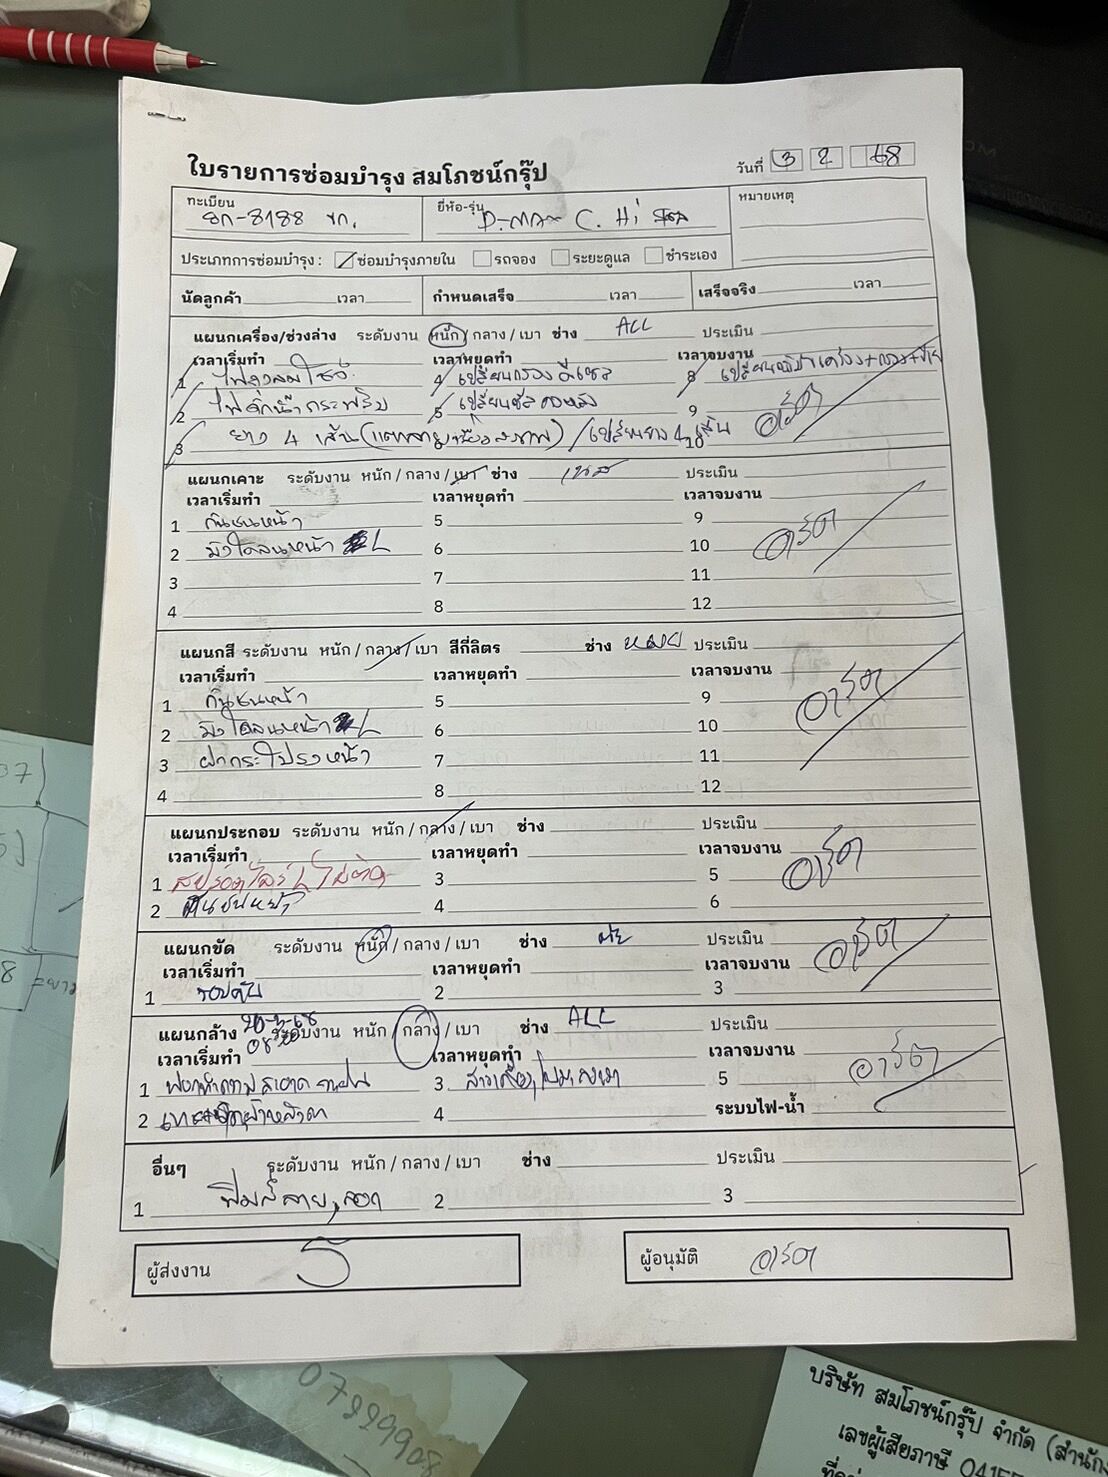 ใบรายการซ่อมบำรุง สมโภชน์กรุ๊ป
วันที่ 3 2 68
ทะเบียน ยี่ห้อ-รุ่น หมายเหตุ
-8188 ขก. D-MAX C. Hi
ประเภทการซ่อมบำรุง : ซ่อมบำรุงภายใน รถจอง ระยะดูแล ชำระเอง
นัดลูกค้า เวลา กำหนดเสร็จ เวลา เสร็จจริง เวลา
แผนกเครื่อง/ช่วงล่าง ระดับงาน หนัก / กลาง / เบา ช่าง ALL ประเมิน
เวลาเริ่มทำ เวลาหยุดทำ เวลาจบงาน
1 4 เปลี่ยนกรองดีเซล 8
2 5 9
3 ยาง 4 เส้น / เปลี่ยนยาง 4 เส้น 10 อาร์ต
แผนกเคาะ ระดับงาน หนัก / กลาง / เบา ช่าง ประเมิน
เวลาเริ่มทำ เวลาหยุดทำ เวลาจบงาน
1 กันชนหน้า 5 9
2 บังโคลนหน้า L 6 10 อาร์ต
3 7 11
4 8 12
แผนกสี ระดับงาน หนัก / กลาง / เบา สีกี่ลิตร ช่าง ประเมิน
เวลาเริ่มทำ เวลาหยุดทำ เวลาจบงาน
1 กันชนหน้า 5 9 อาร์ต
2 บังโคลนหน้า L 6 10
3 ฝากระโปรงหน้า 7 11
4 8 12
แผนกประกอบ ระดับงาน หนัก / กลาง / เบา ช่าง ประเมิน
เวลาเริ่มทำ เวลาหยุดทำ เวลาจบงาน
1 สปอร์ตไลร์ L ไม่ติด 3 5 อาร์ต
2 กันชนหน้า 4 6
แผนกขัด ระดับงาน หนัก / กลาง / เบา ช่าง ประเมิน
เวลาเริ่มทำ เวลาหยุดทำ เวลาจบงาน อาร์ต
1 รอบคัน 2 3
แผนกล้าง ระดับงาน หนัก / กลาง / เบา ช่าง ALL ประเมิน
เวลาเริ่มทำ เวลาหยุดทำ เวลาจบงาน
1 3 5 อาร์ต
2 4 ระบบไฟ-น้ำ
อื่นๆ ระดับงาน หนัก / กลาง / เบา ช่าง ประเมิน
1 ฟิมส์ลาย, ลอก 2 3
ผู้ส่งงาน ผู้อนุมัติ อาร์ต
07899908
บริษัท สมโภชน์กรุ๊ป จำกัด (สำนัก
เลขผู้เสียภาษี 0415